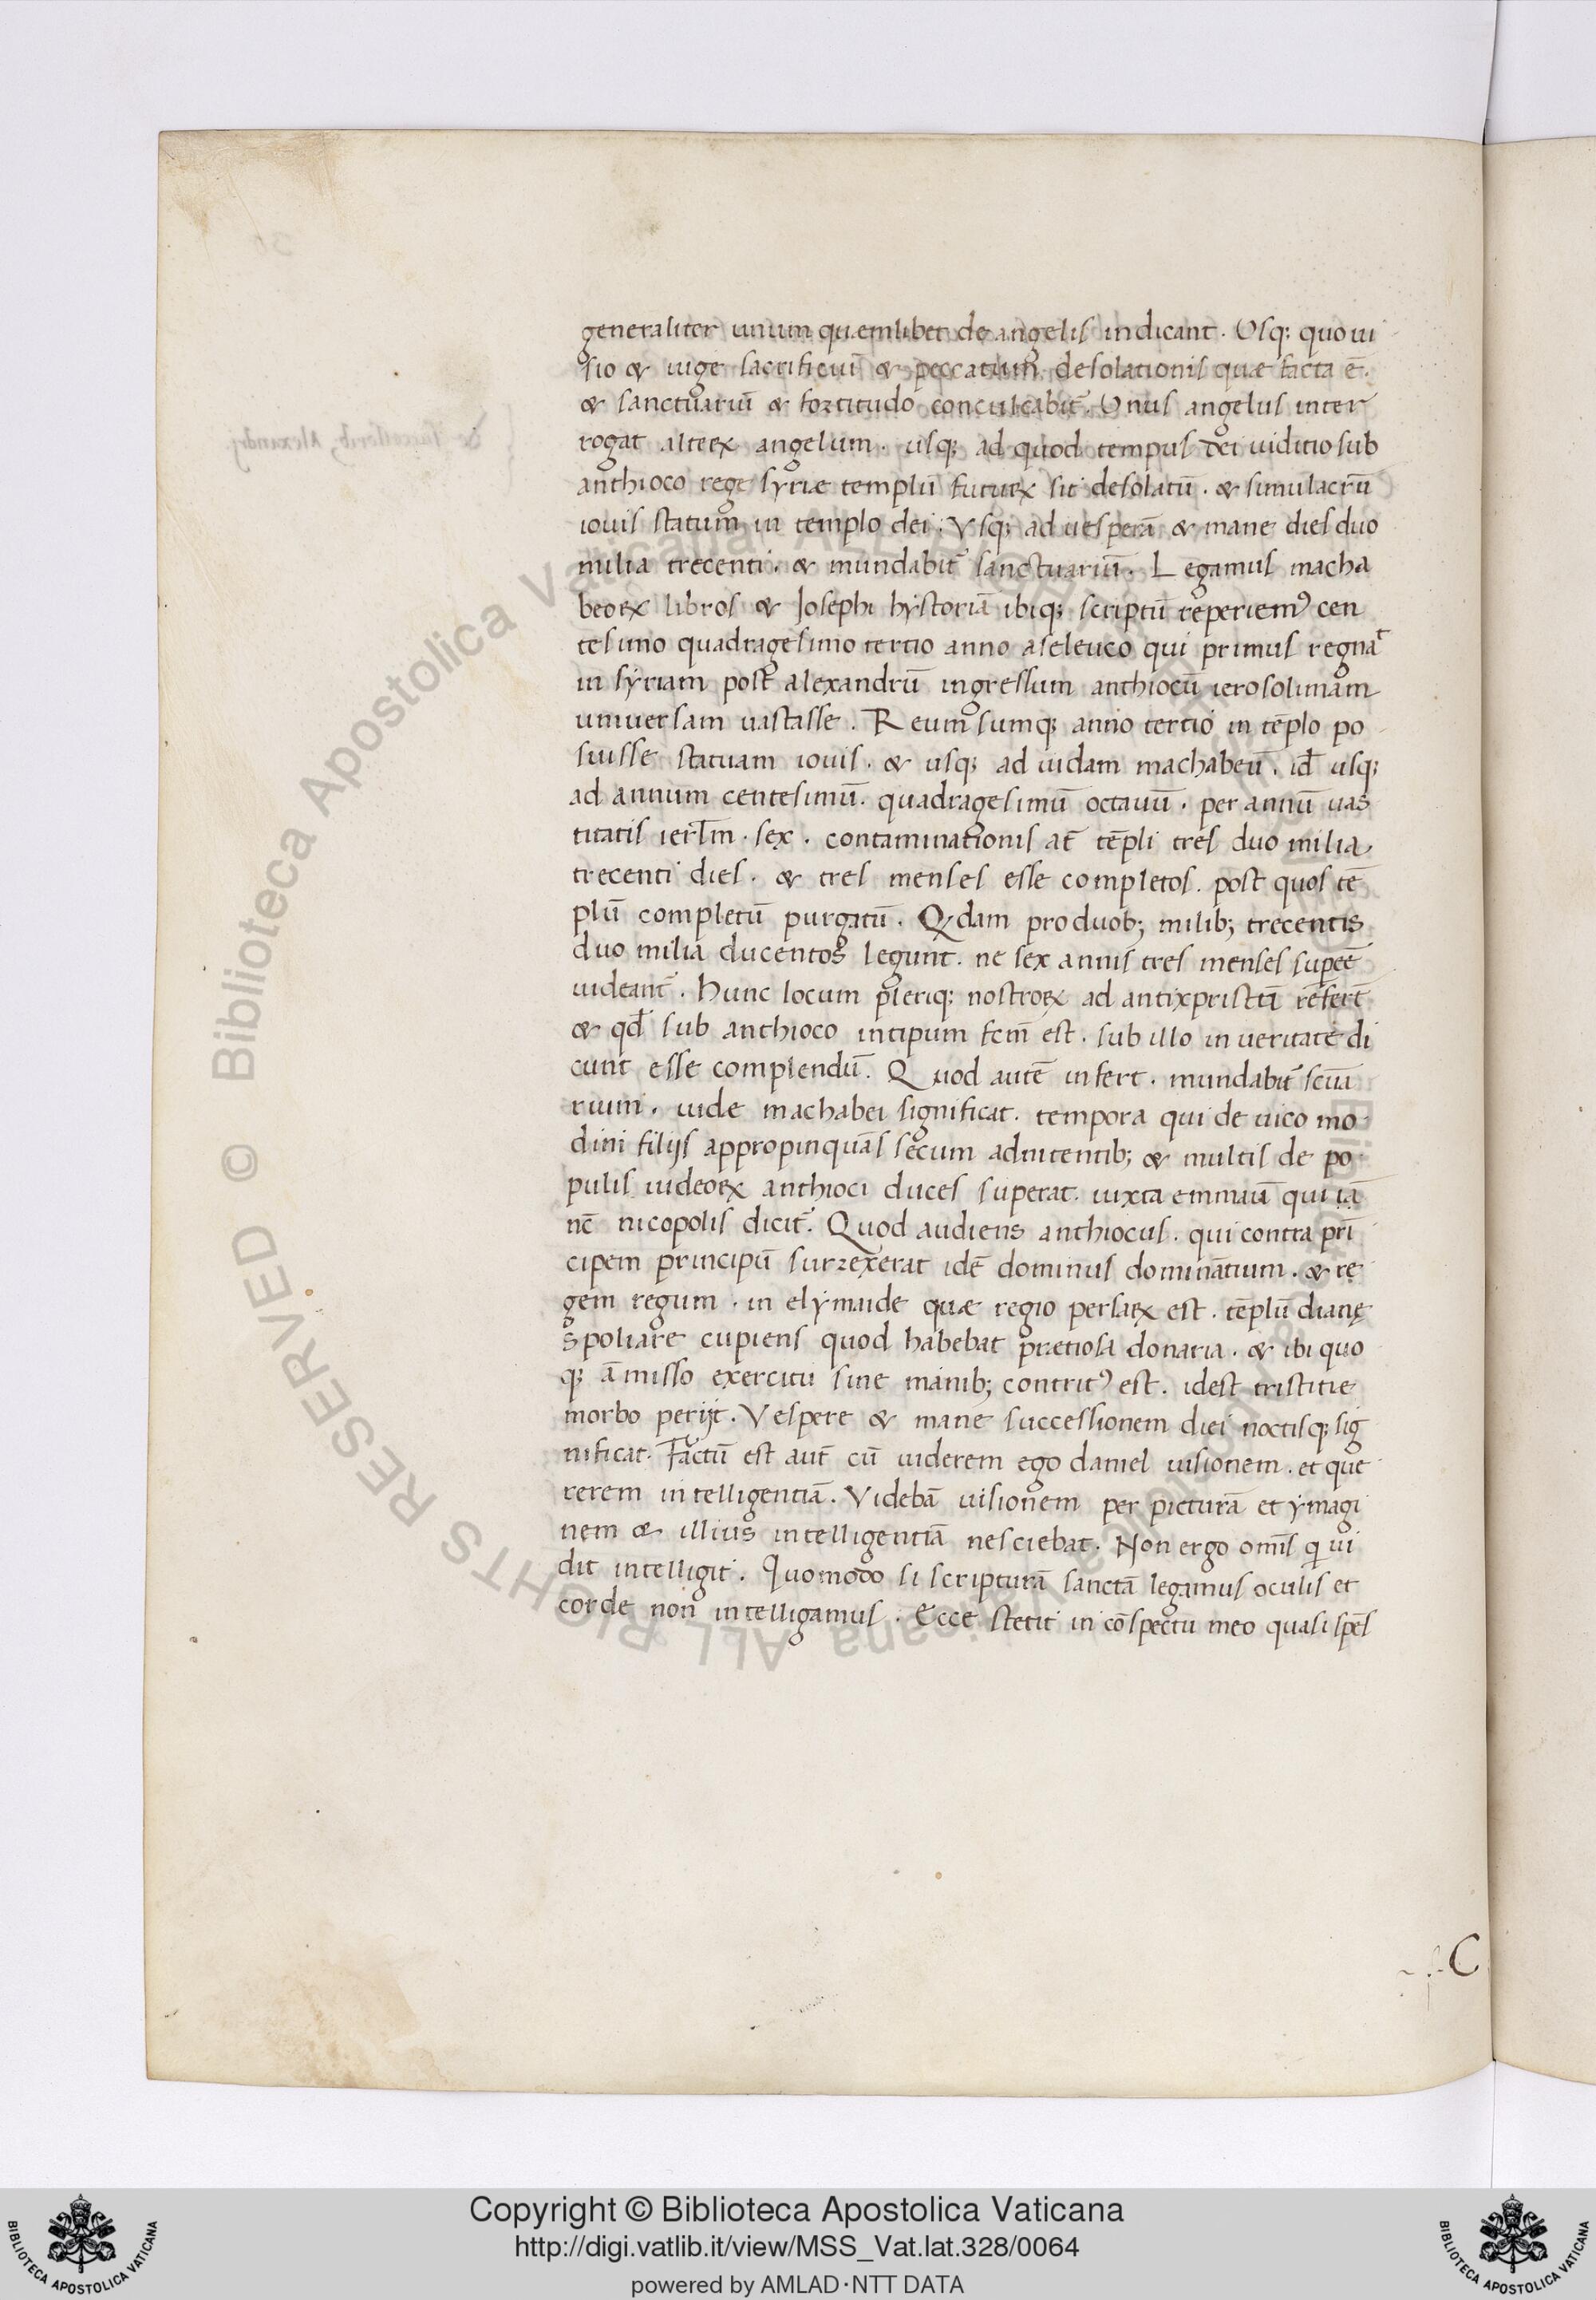 generaliter unum quemlibet de angelis indicant. Usq; quo ui
sio & iuge sacrificiū & peccatum desolationis quæ facta ē.
& sanctuariū & fortitudo conculcabit᷑. Unus angelus inter
rogat alteꝝ angelum. usq; ad quod tempus dei iuditio sub
anthioco rege syriæ templū futuꝝ sit desolatū. & simulacrū
iouis statum in templo dei. Vsq; ad uesperā & mane dies duo
milia trecenti. & mundabit᷑ sanctuariū. Legamus macha
beoꝝ libros & Josephi hystoriā ibiq; scriptū reperiemꝰ cen
tesimo quadragesimo tertio anno a seleuco qui primus regnat
in syriam post alexandrū ingressum anthiocū ierosolimam
uniuersam uastasse. Reumsumq; anno tertio in tēplo po
suisse statuam iouis. & usq; ad iudam machabeū. id̄ usq;
ad annum centesimū. quadragesimū octauū. per annū uas
titatis ierl̄m. sex. contaminationis at̄ tēpli tres duo milia
trecenti dies. & tres menses esse completos. post quos tē
plū completū purgatū. Qdam pro duob; milib; trecentis
duo milia ducentos legunt. ne sex annis tres menses supeē
uideant᷑. Hunc locum pleriq; nostroꝝ ad antixpristū refert
& qd̄ sub anthioco intipum fcm̄ est. sub illo in ueritate di
cunt esse complendū. Quod autē infert. mundabit᷑ scūa
rium. iude machabei significat. tempora qui de uico mo
dini filijs appropinquās secum adnitentib; & multis de po
pulis iudeoꝝ anthioci duces superat. iuxta emmaū qui iā
nc̄ nicopolis dicit᷑. Quod audiens anthiocus. qui contra prī
cipem principū surrexerat idē dominus dominātium. & re
gem regum. in elymaide quæ regio persaꝝ est. tēplū dianę
spoliare cupiens quod habebat prætiosa donaria. & ibi quo
q; āmisso exercitu sine manib; contritꝰ est. idest tristitie
morbo perijt. Vespere & mane successionem diei noctisq; sig
nificat. Factū est aut̄ cū uiderem ego daniel uisionem. et que
rerem intelligentiā. Videbā uisionem per picturā et ymagi
nem & illius intelligentiā nesciebat. Non ergo omīs q ui
dit intelligit. Quomodo si scripturā sanctā legamus oculis et
corde non intelligamus. Ecce stetit in cōspectu meo quasi spēs
C
Biblioteca Apostolica Vaticana ALL RIGHTS RESERVED ©
Copyright © Biblioteca Apostolica Vaticana
http://digi.vatlib.it/view/MSS_Vat.lat.328/0064
powered by AMLAD·NTT DATA
BIBLIOTECA APOSTOLICA VATICANA
BIBLIOTECA APOSTOLICA VATICANA